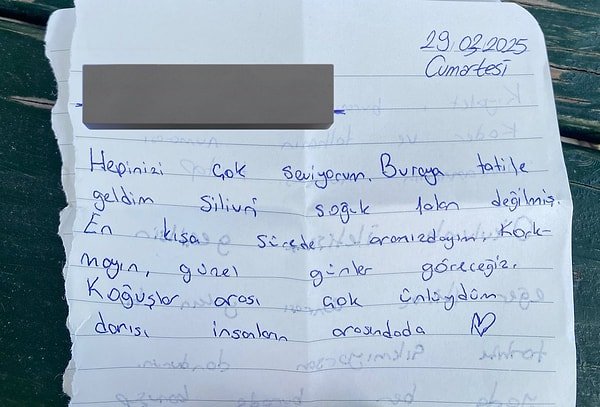 29.03.2025
Cumartesi
Hepinizi çok seviyorum. Buraya tatile
geldim Silivri soğuk falan değilmiş.
En kısa sürede aranızdayım. Kork-
mayın, güzel günler göreceğiz.
Koğuşlar arası çok ünlüydüm
darısı insanların arasındada